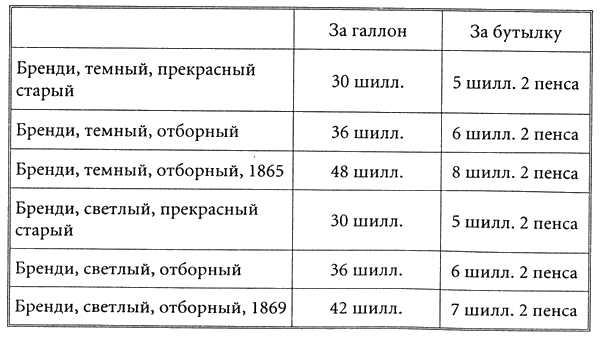 За галлон За бутылку
Бренди, темный, прекрасный
старый 30 шилл. 5 шилл. 2 пенса
Бренди, темный, отборный 36 шилл. 6 шилл. 2 пенса
Бренди, темный, отборный, 1865 48 шилл. 8 шилл. 2 пенса
Бренди, светлый, прекрасный
старый 30 шилл. 5 шилл. 2 пенса
Бренди, светлый, отборный 36 шилл. 6 шилл. 2 пенса
Бренди, светлый, отборный, 1869 42 шилл. 7 шилл. 2 пенса